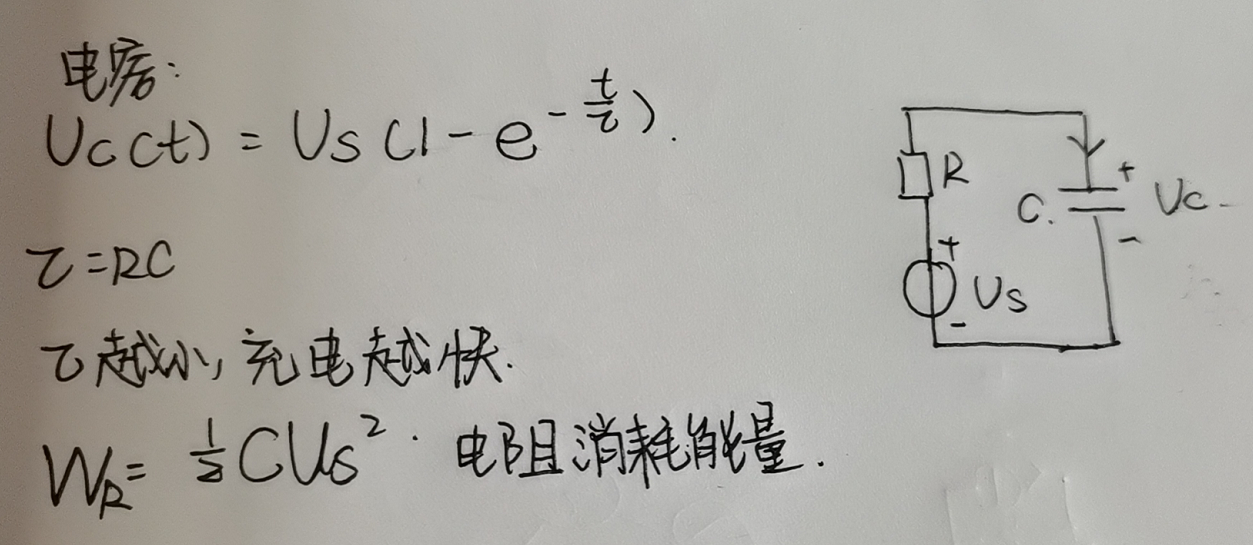 电容:
Uc(t) = Us(1-e^{-\frac{t}{τ}}).
τ=RC
τ越小,充电越快.
W_R= \frac{1}{2}CUs². 电阻消耗能量.
R
C.
+
Uc
-
+
Us
-